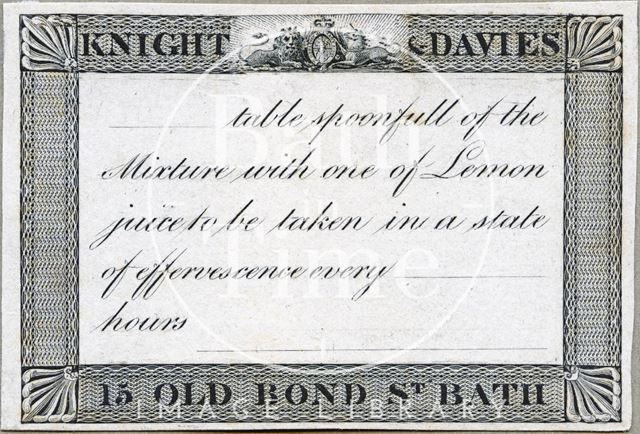 KNIGHT & DAVIES
table spoonfull of the
Mixture with one of Lemon
juice to be taken in a state
of effervescence every
hours
15 OLD BOND ST BATH
Bath
in
Time
IMAGE LIBRARY